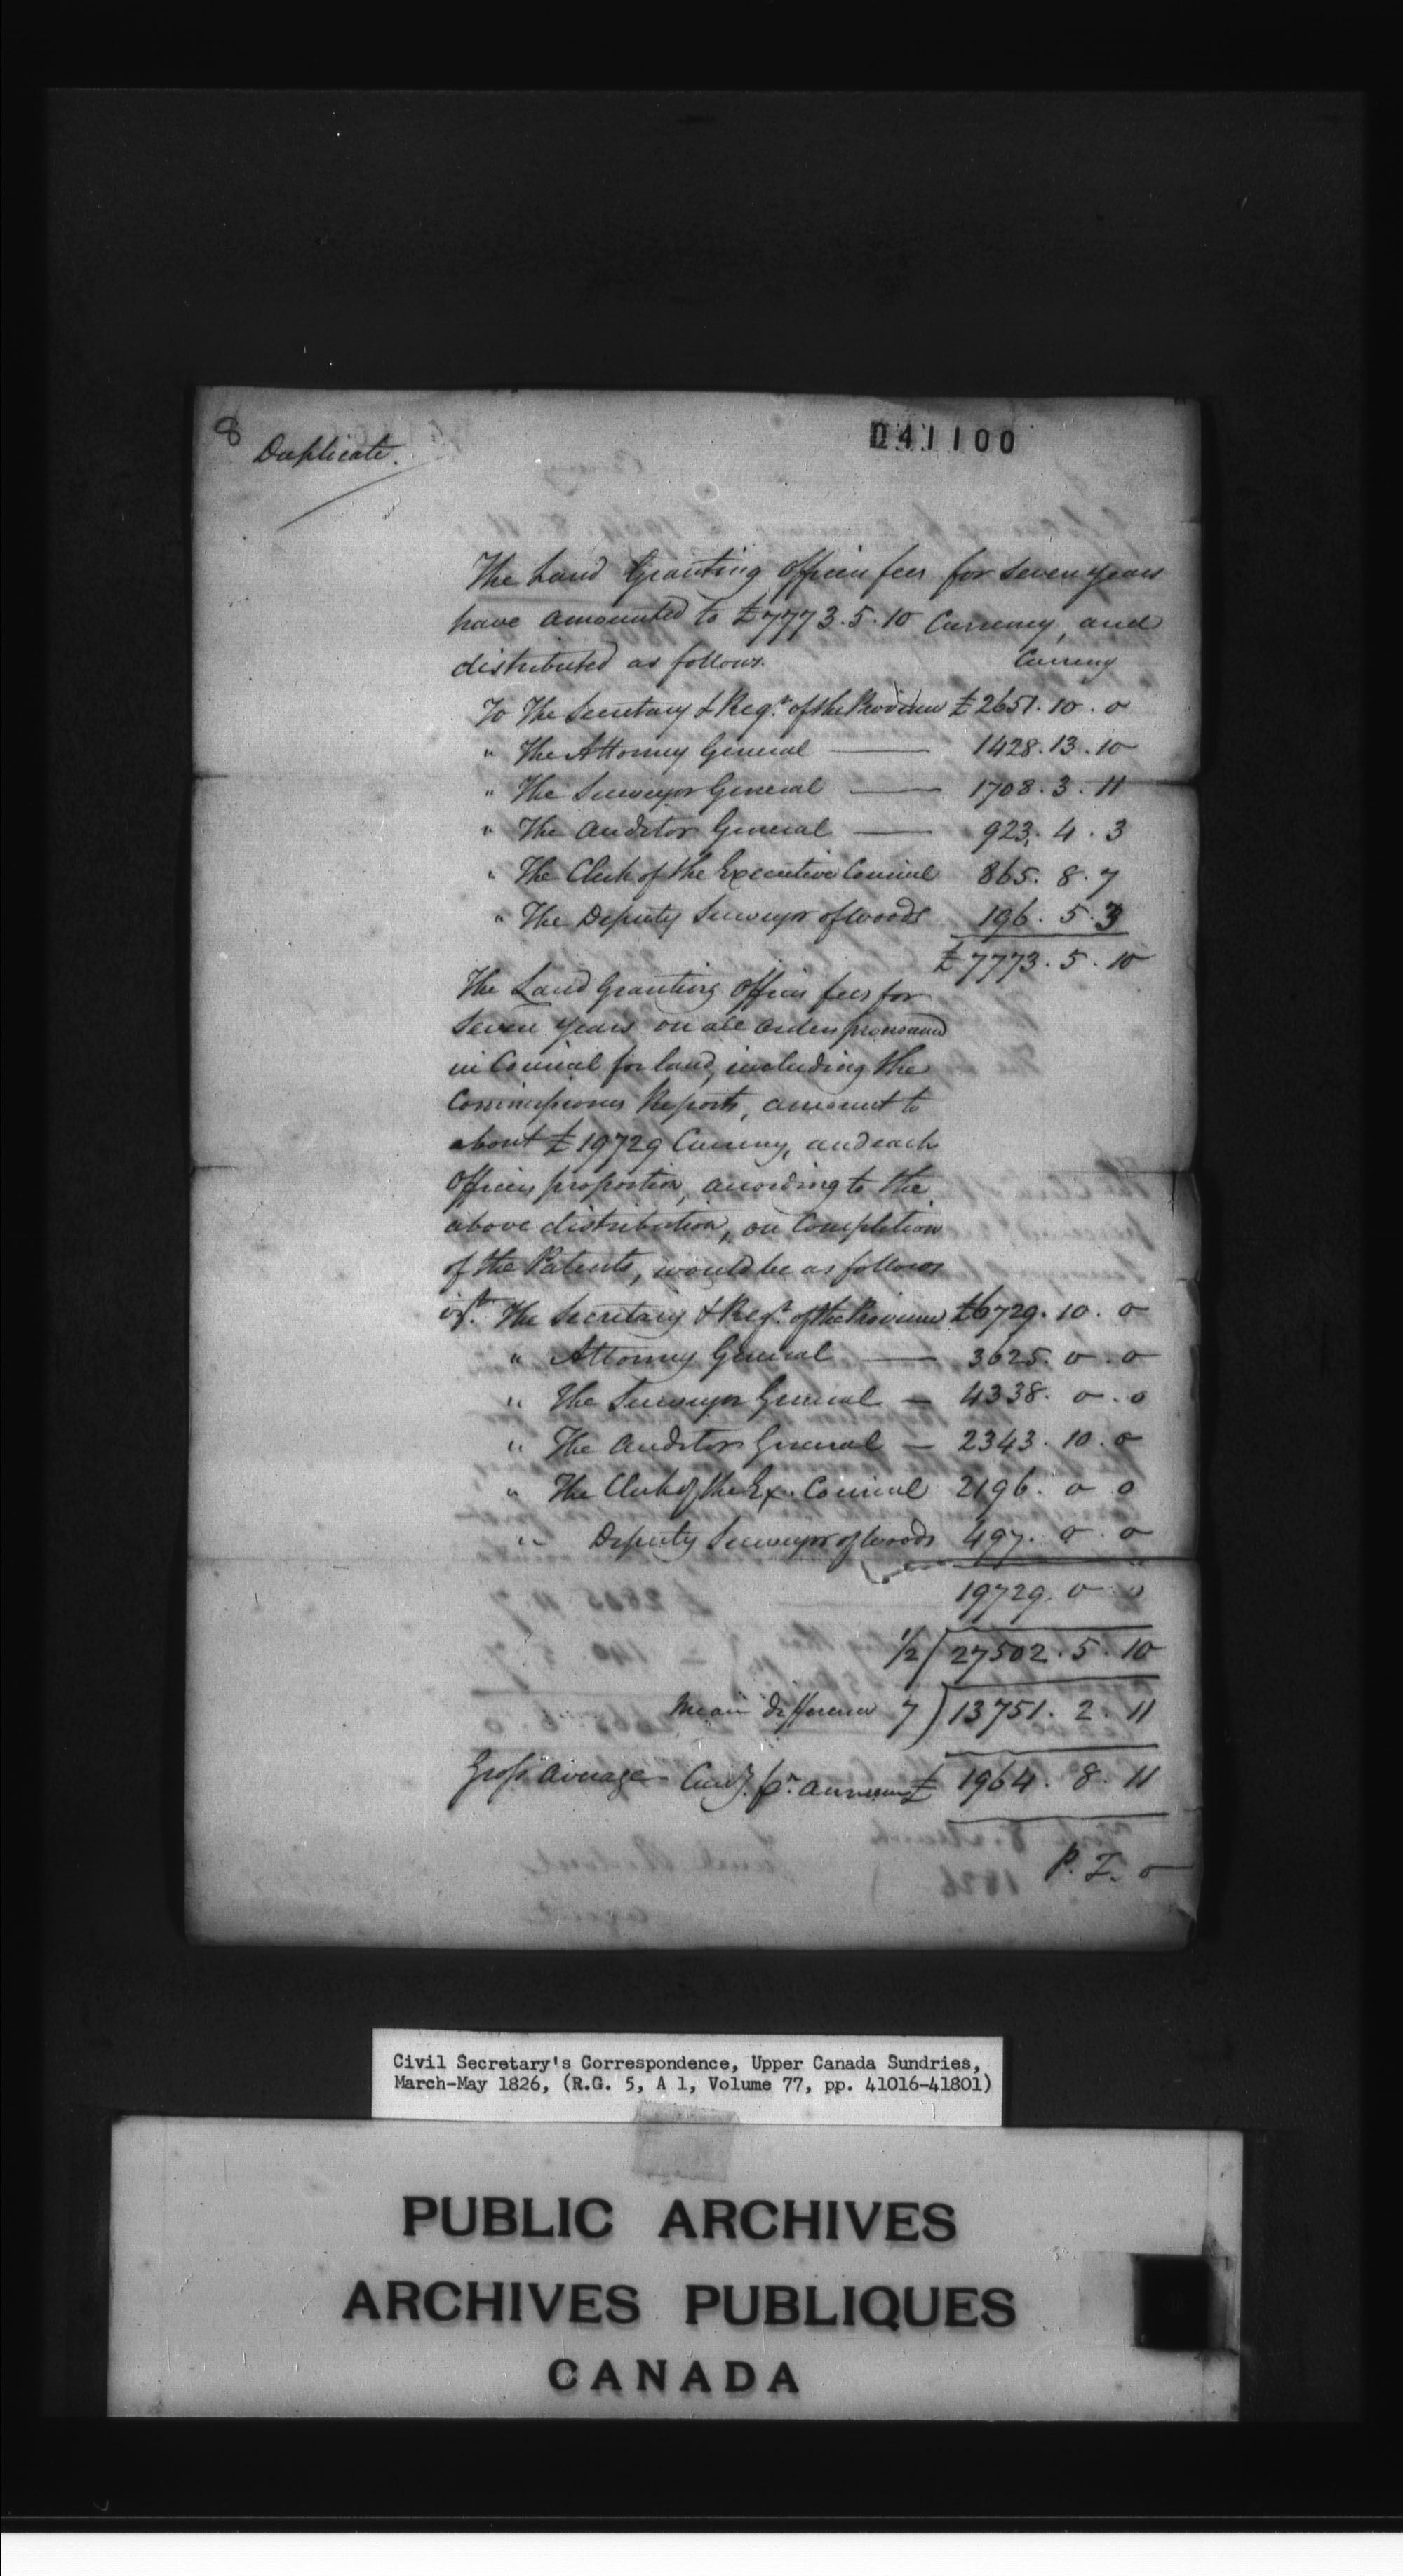 8
Duplicate.
041100
The Land Granting Officers fees for seven years
have amounted to £7773.5.10 Currency, and
distributed as follows.
Currency
To The Secretary & Regr. of the Province £2651.10.0
" The Attorney General — 1428.13.10
" The Surveyor General — 1708.3.11
" The Auditor General — 923.4.3
" The Clerk of the Executive Council 865.8.7
" The Deputy Surveyor of Woods 196.5.3
£7773.5.10
The Land Granting Officers fees for
Seven Years on all orders pronounced
in Council for land, including the
Commissioners Reports, amount to
about £19729 Currency, and each
Officers proportion, according to the
above distribution, on Completion
of the Patents, would be as follows
The Secretary & Regr. of the Province £6729.10.0
" Attorney General — 3625.0.0
" The Surveyor General — 4338.0.0
" The Auditor General — 2343.10.0
" The Clerk of the Ex. Council 2196.0.0
" Deputy Surveyor of Woods 497.0.0
19729.0.0
1/2) 27502.5.10
Mean difference 7) 13751.2.11
Gross average Curry. pr. annum £ 1964.8.11
Civil Secretary's Correspondence, Upper Canada Sundries,
March-May 1826, (R.G. 5, A 1, Volume 77, pp. 41016-41801)
PUBLIC ARCHIVES
ARCHIVES PUBLIQUES
CANADA